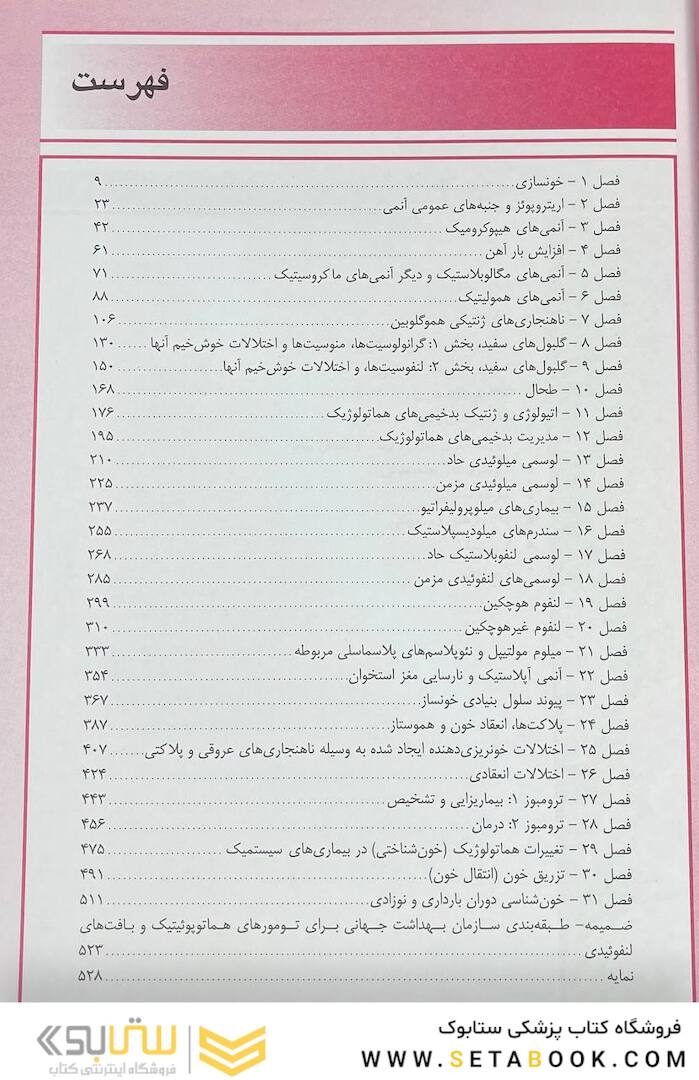 فهرست
فصل ۱ - خونسازی ........ ۹
فصل ۲ - اریتروپوئز و جنبه‌های عمومی آنمی ........ ۲۳
فصل ۳ - آنمی‌های هیپوکرومیک ........ ۴۲
فصل ۴ - افزایش بار آهن ........ ۶۱
فصل ۵ - آنمی‌های مگالوبلاستیک و دیگر آنمی‌های ماکروسیتیک ........ ۷۱
فصل ۶ - آنمی‌های همولیتیک ........ ۸۸
فصل ۷ - ناهنجاری‌های ژنتیکی هموگلوبین ........ ۱۰۶
فصل ۸ - گلبول‌های سفید، بخش ۱: گرانولوسیت‌ها، منوسیت‌ها و اختلالات خوش‌خیم آنها ...... ۱۳۰
فصل ۹ - گلبول‌های سفید، بخش ۲: لنفوسیت‌ها، و اختلالات خوش‌خیم آنها ........ ۱۵۰
فصل ۱۰ - طحال ........ ۱۶۸
فصل ۱۱ - اتیولوژی و ژنتیک بدخیمی‌های هماتولوژیک ........ ۱۷۶
فصل ۱۲ - مدیریت بدخیمی‌های هماتولوژیک ........ ۱۹۵
فصل ۱۳ - لوسمی میلوئیدی حاد ........ ۲۱۰
فصل ۱۴ - لوسمی میلوئیدی مزمن ........ ۲۲۵
فصل ۱۵ - بیماری‌های میلوپرولیفراتیو ........ ۲۳۷
فصل ۱۶ - سندرم‌های میلودیسپلاستیک ........ ۲۵۵
فصل ۱۷ - لوسمی لنفوبلاستیک حاد ........ ۲۶۸
فصل ۱۸ - لوسمی‌های لنفوئیدی مزمن ........ ۲۸۵
فصل ۱۹ - لنفوم هوچکین ........ ۲۹۹
فصل ۲۰ - لنفوم غیرهوچکین ........ ۳۱۰
فصل ۲۱ - میلوم مولتیپل و نئوپلاسم‌های پلاسماسلی مربوطه ........ ۳۳۳
فصل ۲۲ - آنمی آپلاستیک و نارسایی مغز استخوان ........ ۳۵۴
فصل ۲۳ - پیوند سلول بنیادی خونساز ........ ۳۶۷
فصل ۲۴ - پلاکت‌ها، انعقاد خون و هموستاز ........ ۳۸۷
فصل ۲۵ - اختلالات خونریزی‌دهنده ایجاد شده به وسیله ناهنجاری‌های عروقی و پلاکتی ....... ۴۰۷
فصل ۲۶ - اختلالات انعقادی ........ ۴۲۴
فصل ۲۷ - ترومبوز ۱: بیماریزایی و تشخیص ........ ۴۴۳
فصل ۲۸ - ترومبوز ۲: درمان ........ ۴۵۶
فصل ۲۹ - تغییرات هماتولوژیک (خون‌شناختی) در بیماری‌های سیستمیک ........ ۴۷۵
فصل ۳۰ - تزریق خون (انتقال خون) ........ ۴۹۱
فصل ۳۱ - خون‌شناسی دوران بارداری و نوزادی ........ ۵۱۱
ضمیمه- طبقه‌بندی سازمان بهداشت جهانی برای تومورهای هماتوپوئیتیک و بافت‌های
لنفوئیدی ........ ۵۲۳
نمایه ........ ۵۲۸
فروشگاه کتاب پزشکی ستابوک
WWW.SETABOOK.COM
ستابوک
فروشگاه اینترنتی کتاب